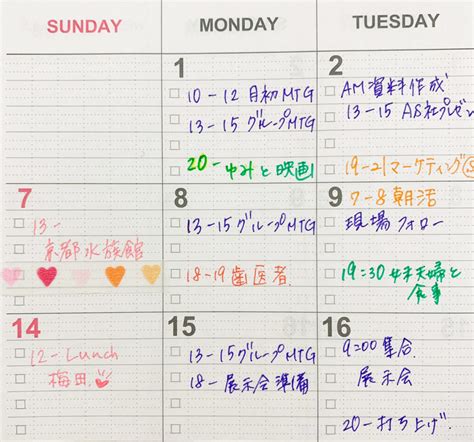 SUNDAY MONDAY TUESDAY
1
10-12 月初MTG
13-15 グループMTG
20- ゆみと映画
2
AM資料作成
13-15 AS社プレゼン
19-21 マーケティング
7
13-
京都水族館
8
13-15 グループMTG
18-19 歯医者
9
7-8 朝活
現場フォロー
19:30 妹夫婦と
食事
14
12- Lunch
梅田
15
13-15 グループMTG
18- 展示会準備
16
9:00 集合
展示会
20- 打ち上げ